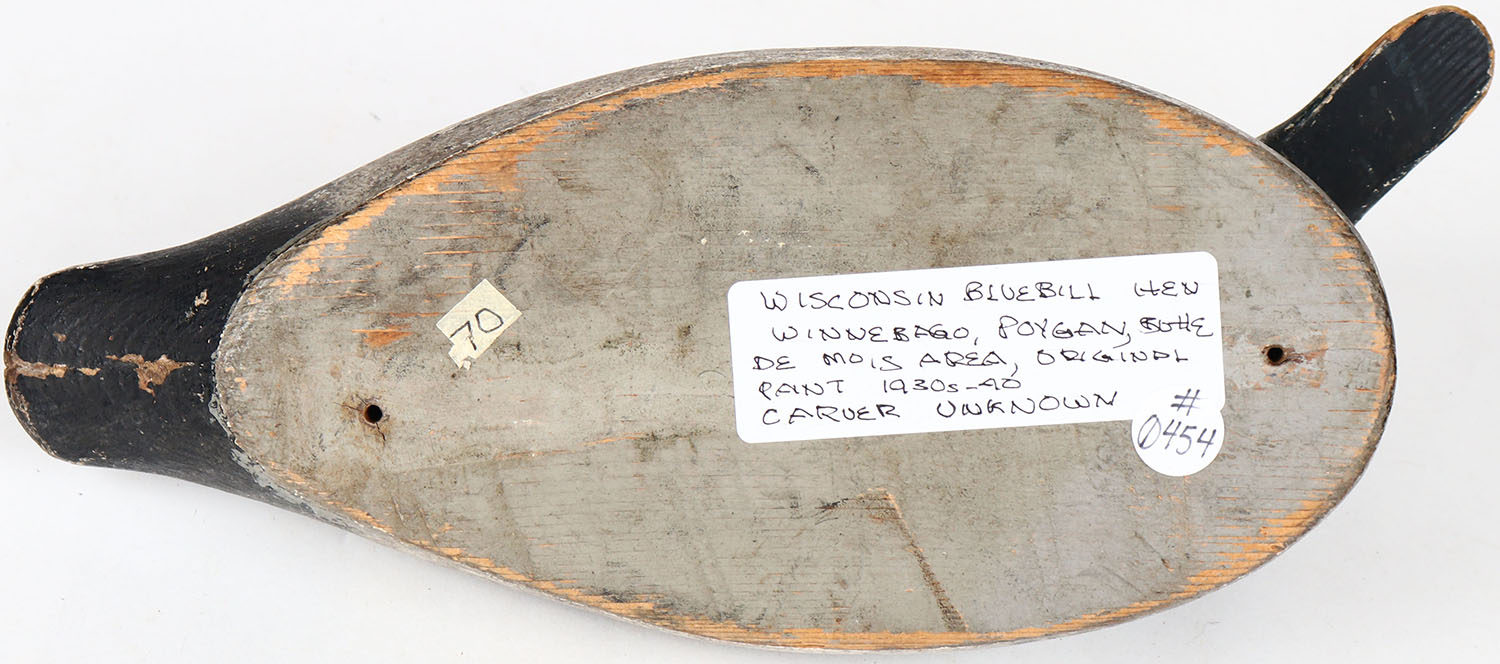 70
WISCONSIN BLUEBILL HEN
WINNEBAGO, POYGAN, BUTTE
DE MOIS AREA, ORIGINAL
PAINT 1930s-40
CARVER UNKNOWN
#
0454